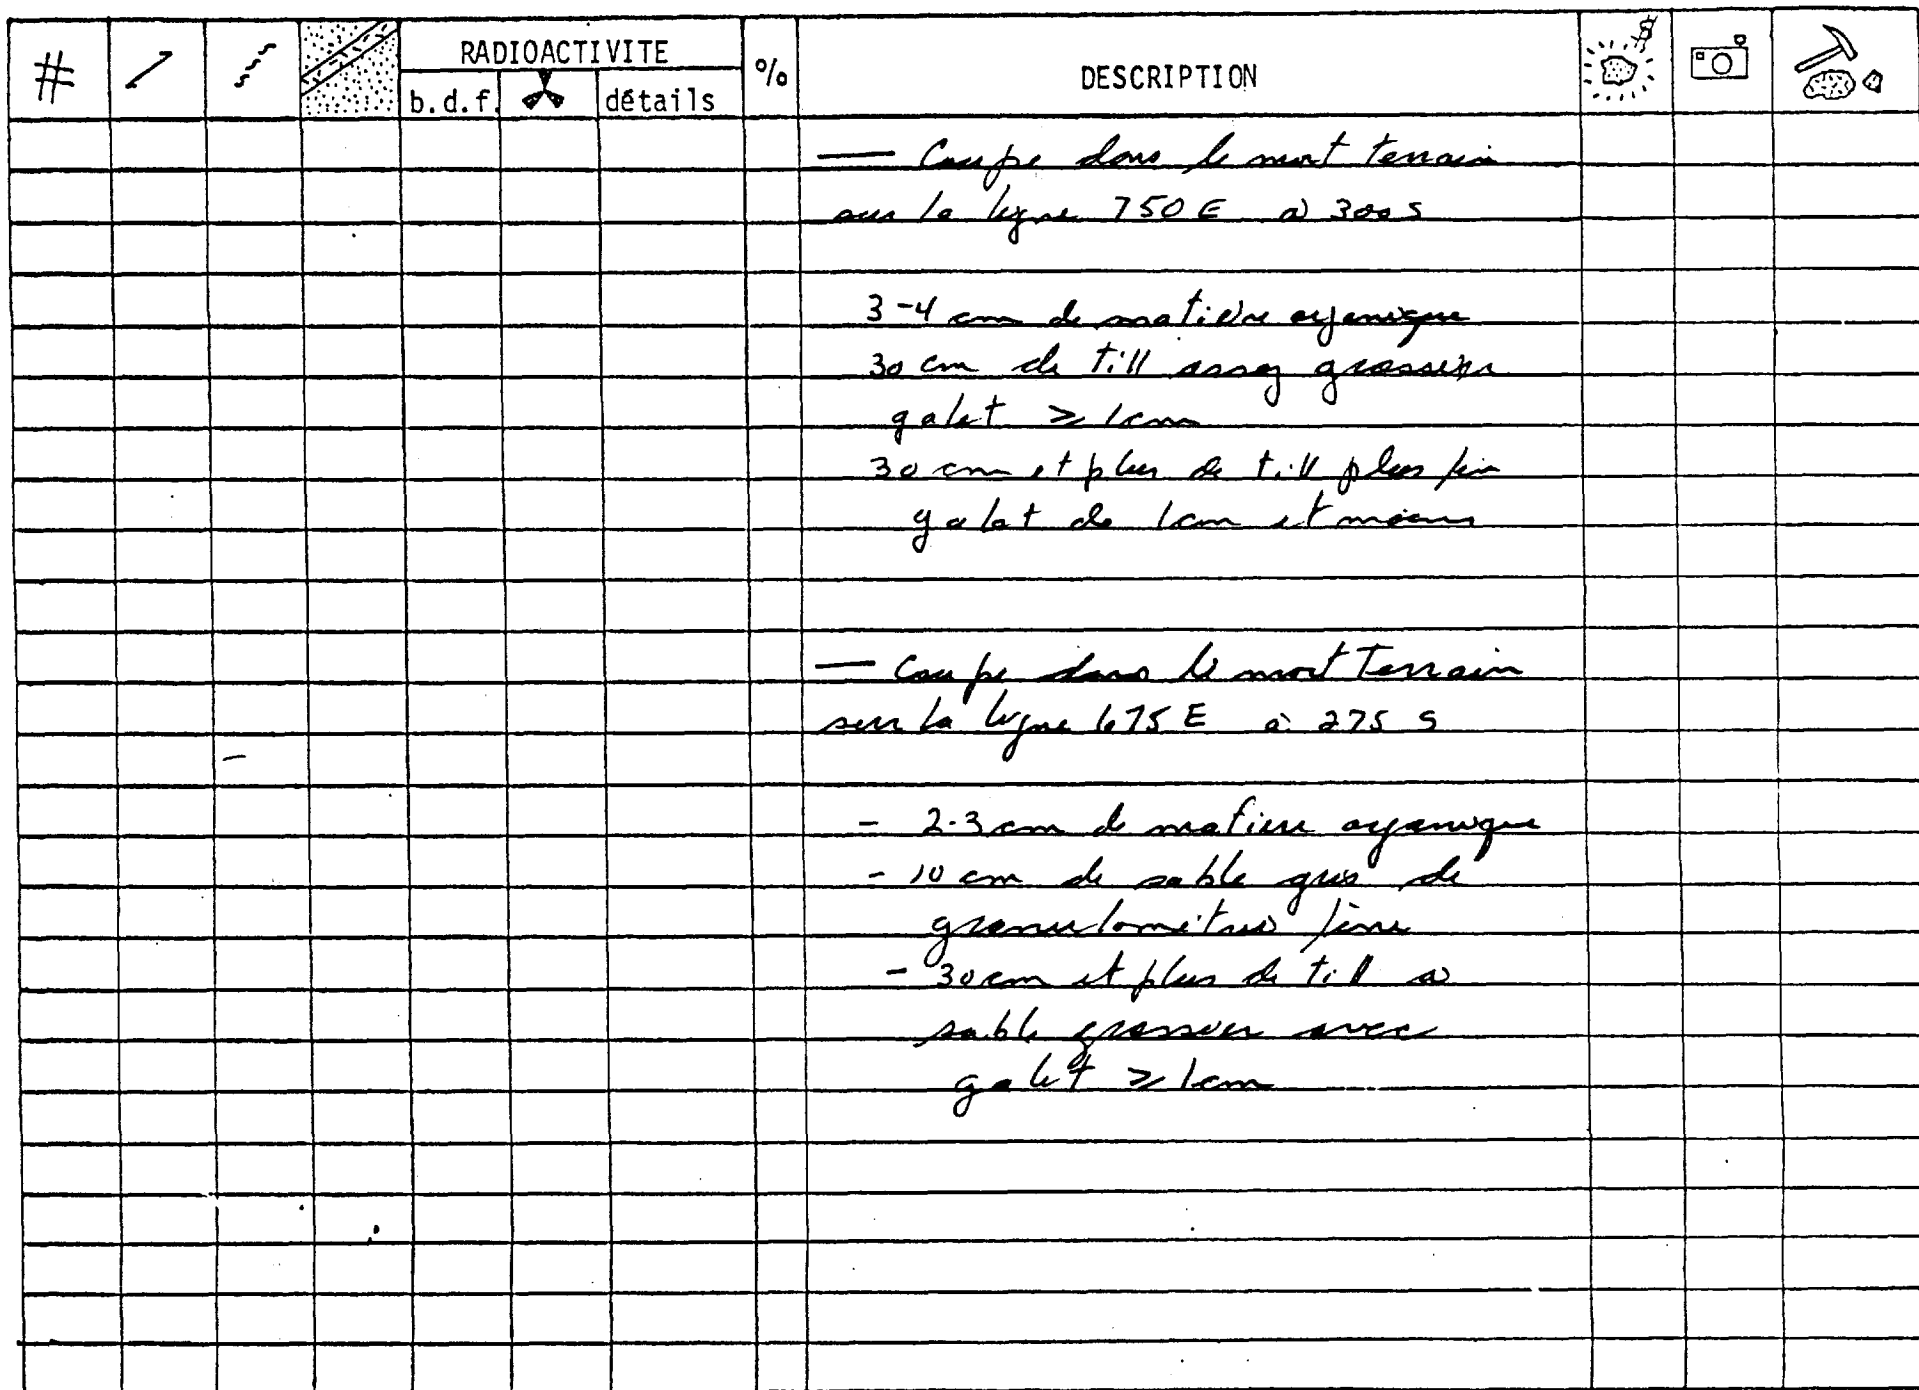 # RADIOACTIVITE % DESCRIPTION $
b.d.f. détails
— Coupe dans le mort terrain
sur la ligne 750 E à 300 S
3-4 cm de matière organique
30 cm de till assez grossier
galet ≥ 1cm
30 cm et plus de till plus fin
galet de 1cm et moins
— Coupe dans le mort Terrain
sur la ligne 675 E à 275 S
- 2-3 cm de matiere organique
- 10 cm de sable gris de
granulométrie fine
- 30 cm et plus de till à
sable grossier avec
galet ≥ 1cm